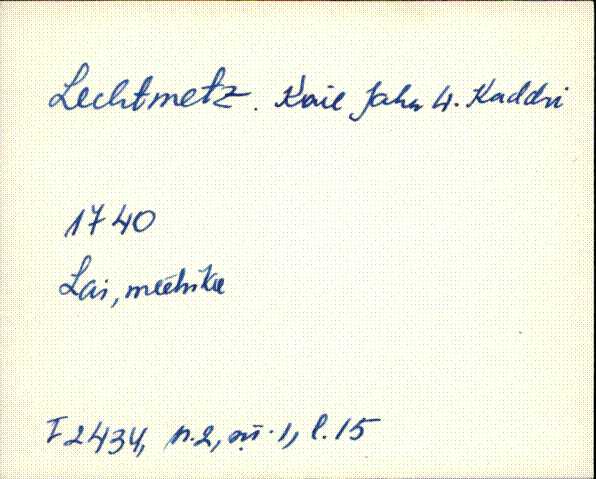 Lechtmetz. Kaie Jahn W. Kaddri
1740
Lai,
I 2434, n.2, sü.1, l.15